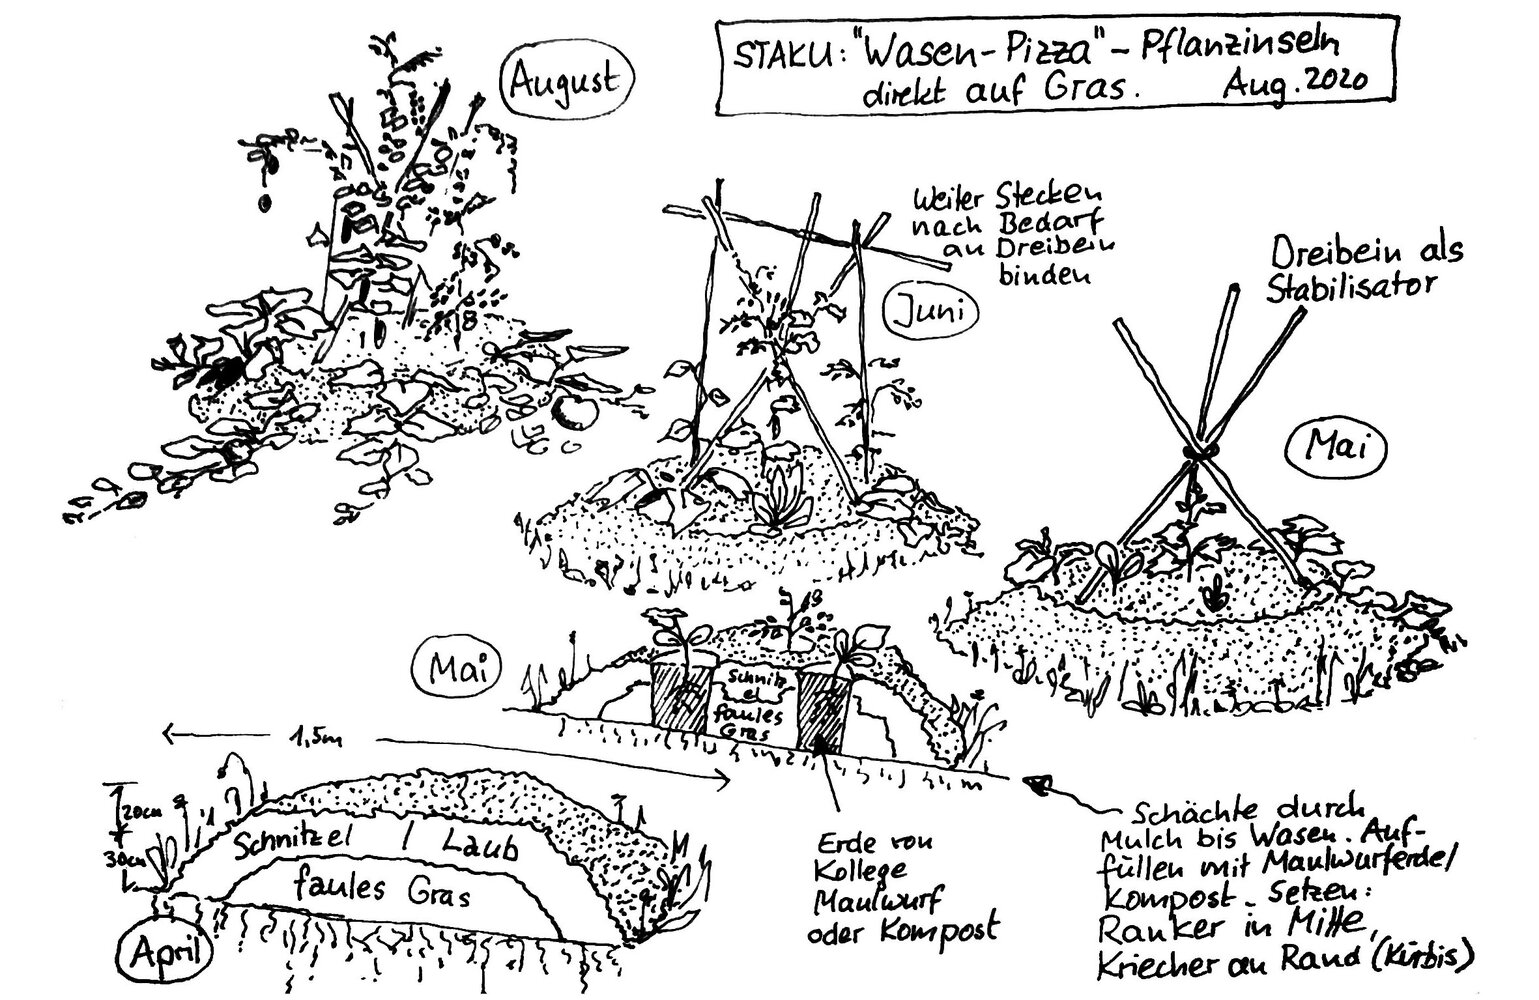 STAKU: "Wasen-Pizza" - Pflanzinseln
direkt auf Gras. Aug. 2020
August
Weiter Stecken
nach Bedarf
an Dreibein
binden
Juni
Dreibein als
Stabilisator
Mai
Mai
Schnitz
el
faules
Gras
1,5m
20cm
30cm
Schnitzel / Laub
faules Gras
April
Erde von
Kollege
Maulwurf
oder Kompost
Schächte durch
Mulch bis Wasen. Auf-
füllen mit Maulwurferde/
Kompost. Setzen:
Ranker in Mitte,
Kriecher an Rand (Kürbis)